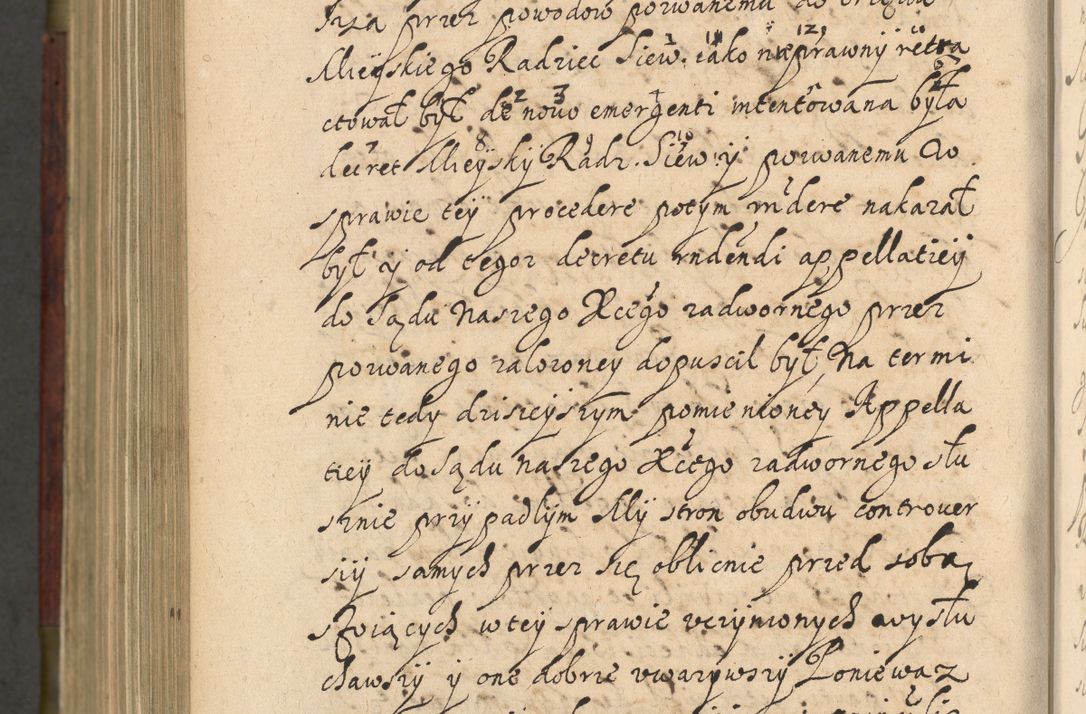 przez powodow pozwanemu do
Mieyskiego Radziec Siew. iako nieprawny retra
ctował był de novo emergenti intentowana była
decret Mieysky Radz. Siew. y pozwanemu w
sprawie tey procedere potym rndere nakazał
był y od tegoz decretu rndendi appellatiey
do Sądu Naszego Xcego zadwornego przez
pozwanego założoney dopuscil był, Na termi
nie tedy dziszeyszym pomienioney Appella
tiey do Sądu naszego Xcego zadwornego słu
sznie przypadlym My stron obudwu controuer
siy samych przez się oblicnie przed sobą
stoiących w tey sprawie vczynionych wysłu
chawszy y one dobrze vwazywszy Poniewaz